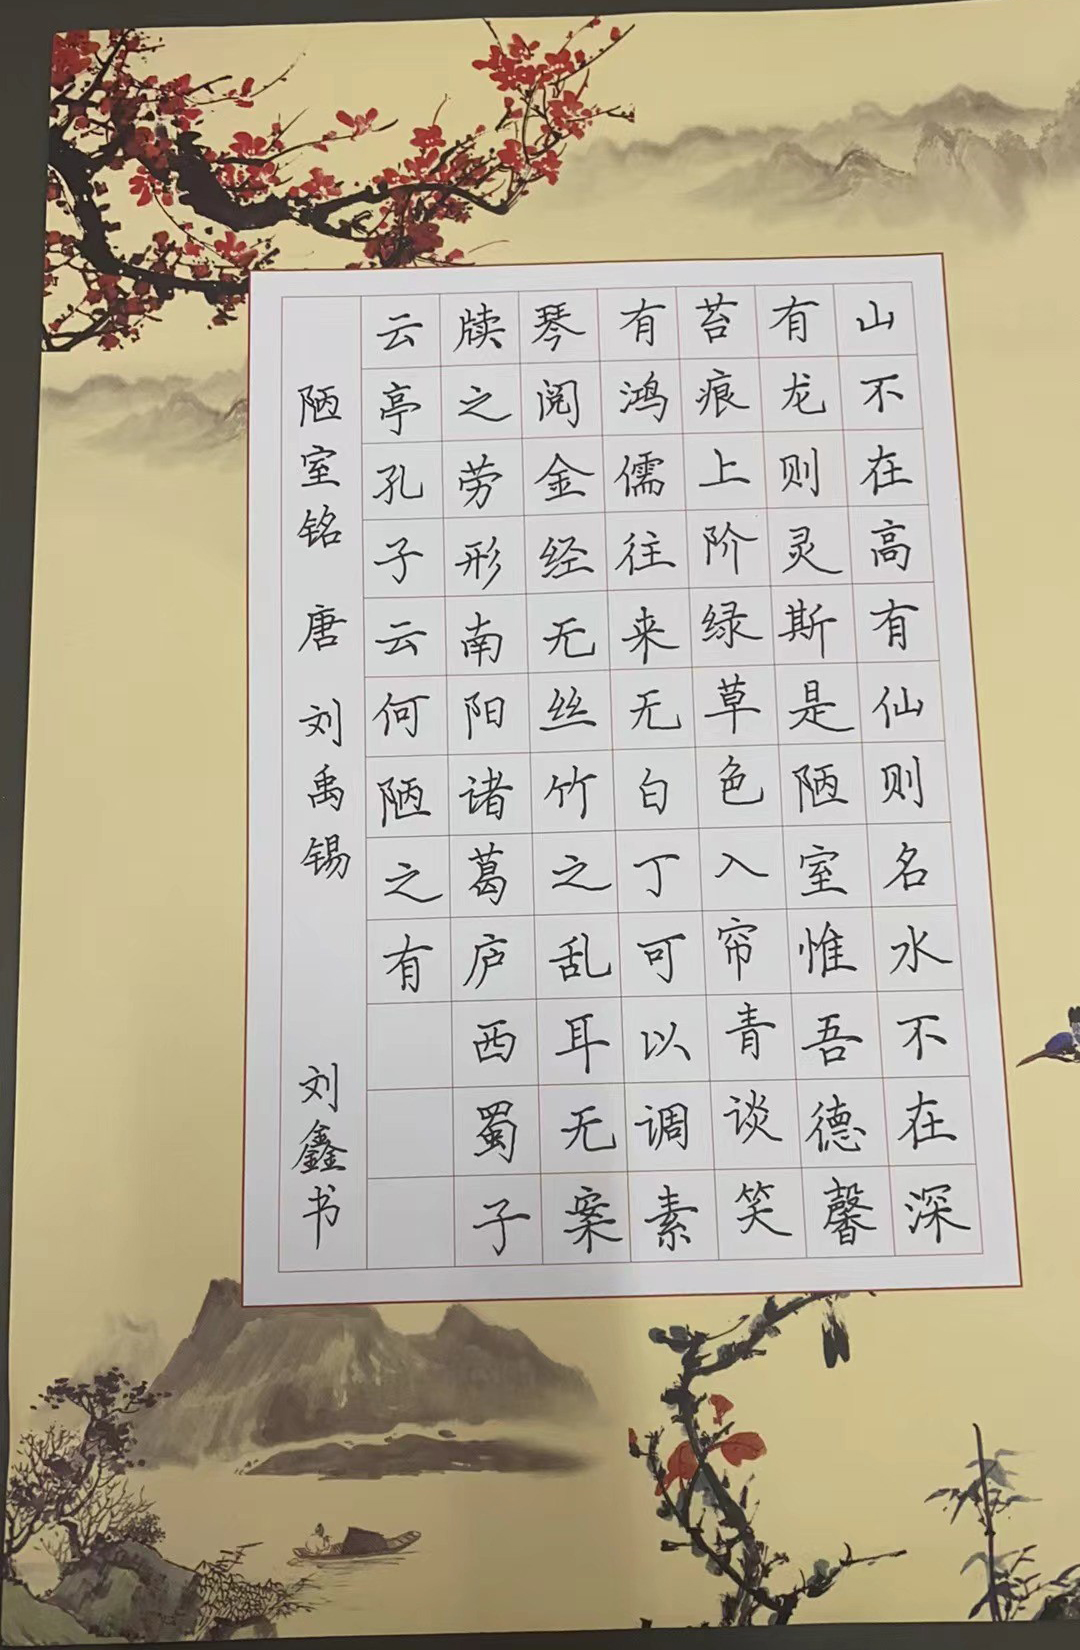 山不在高有仙则名水不在深
有龙则灵斯是陋室惟吾德馨
苔痕上阶绿草色入帘青谈笑
有鸿儒往来无白丁可以调素
琴阅金经无丝竹之乱耳无案
牍之劳形南阳诸葛庐西蜀子
云亭孔子云何陋之有
陋室铭 唐 刘禹锡 刘鑫书